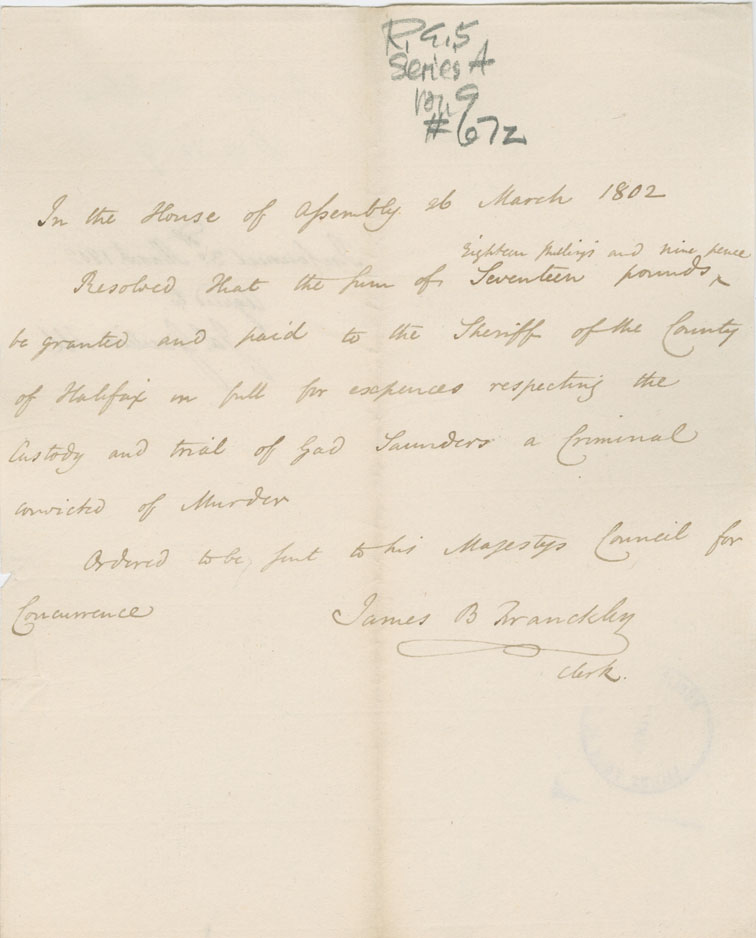 R.G.5
Series A
Vol. 9
#67z
In the House of Assembly 26 March 1802
Eighteen shillings and nine pence
Resolved That the sum of Seventeen pounds ^
be granted and paid to the Sheriff of the County
of Halifax in full for expences respecting the
Custody and trial of Gad Saunders a Criminal
convicted of Murder
Ordered to be sent to his Majestys Council for
Concurrence
James B Franckley
Clerk.